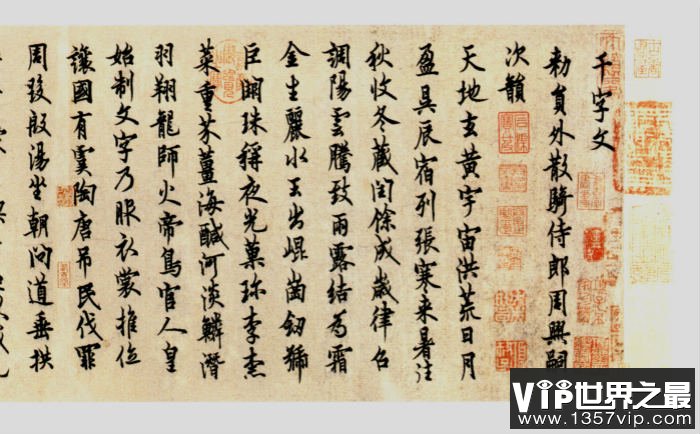 千字文
勑員外散騎侍郎周興嗣
次韻
天地玄黃宇宙洪荒日月
盈昃辰宿列張寒来暑往
秋收冬藏閏餘成歲律召
調陽雲騰致雨露結為霜
金生麗水玉出崐崗劒號
巨闕珠稱夜光菓珎李柰
菜重芥薑海鹹河淡鱗潛
羽翔龍師火帝鳥官人皇
始制文字乃服衣裳推位
讓國有虞陶唐吊民伐罪
周發殷湯坐朝問道垂拱
VIP世界之最
www.1357vip.com